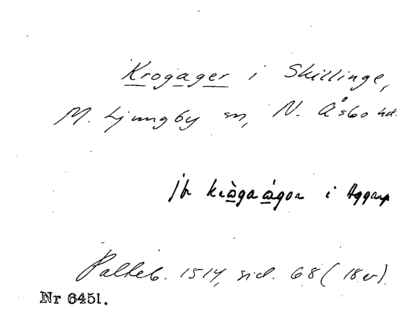 Krogager i Skillinge,
M. Ljungby sn, N. Åsbo hd.
jfr i Aggarp
Palteb. 1514, sid. 68 (18v).
Nr 6451.